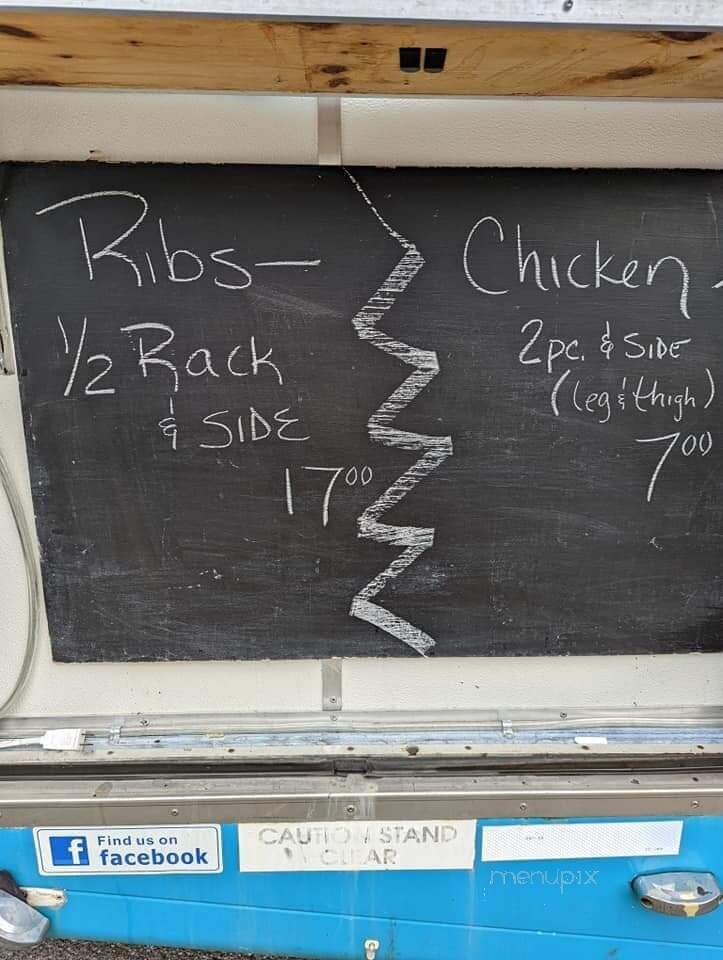 Ribs—
1/2 Rack
& SIDE
17 00
Chicken -
2pc. & SIDE
(leg & thigh)
7 00
Find us on
facebook
CAUTION STAND
CLEAR
menupix